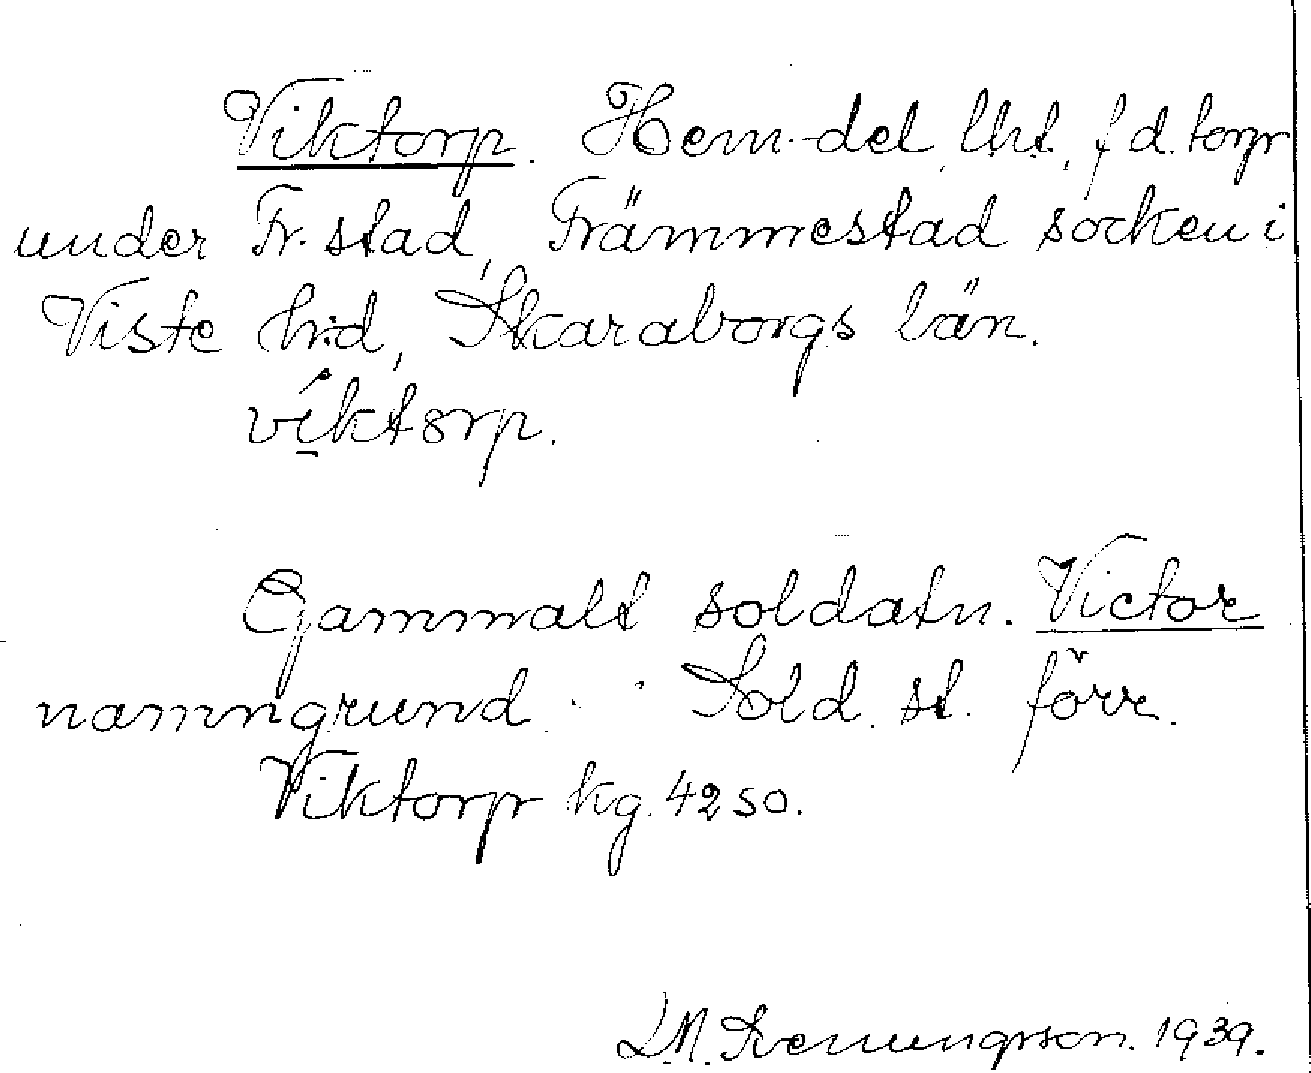 Viktorp. Hem.-del, lht, f d. torp
under Fr. stad, Främmestad socken i
Viste hrd, Skaraborgs län.
víktorp.
Gammalt soldatn. Victor
namngrund. Sold. st. förr.
Viktorp kg. 4250.
L M. Svenungsson. 1939.